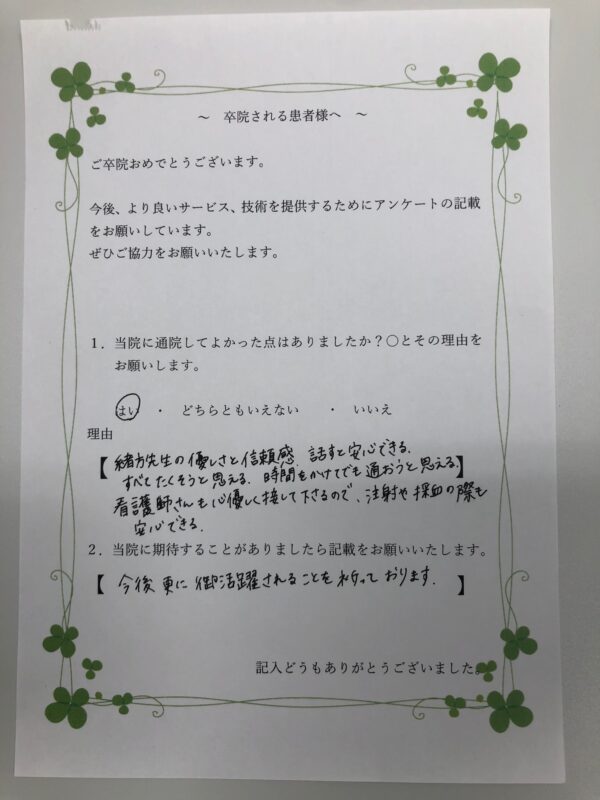 ～ 卒院される患者様へ ～
ご卒院おめでとうございます。
今後、より良いサービス、技術を提供するためにアンケートの記載
をお願いしています。
ぜひご協力をお願いいたします。
１．当院に通院してよかった点はありましたか？〇とその理由を
お願いします。
はい ・ どちらともいえない ・ いいえ
理由
【緒方先生の優しさと信頼感 話すと安心できる。
すべてたくそうと思える。時間をかけてでも通おうと思える】
看護師さんも心優しく接して下さるので、注射や採血の際も
安心できる。
２．当院に期待することがありましたら記載をお願いいたします。
【今後更に御活躍されることを祈っております。】
記入どうもありがとうございました。